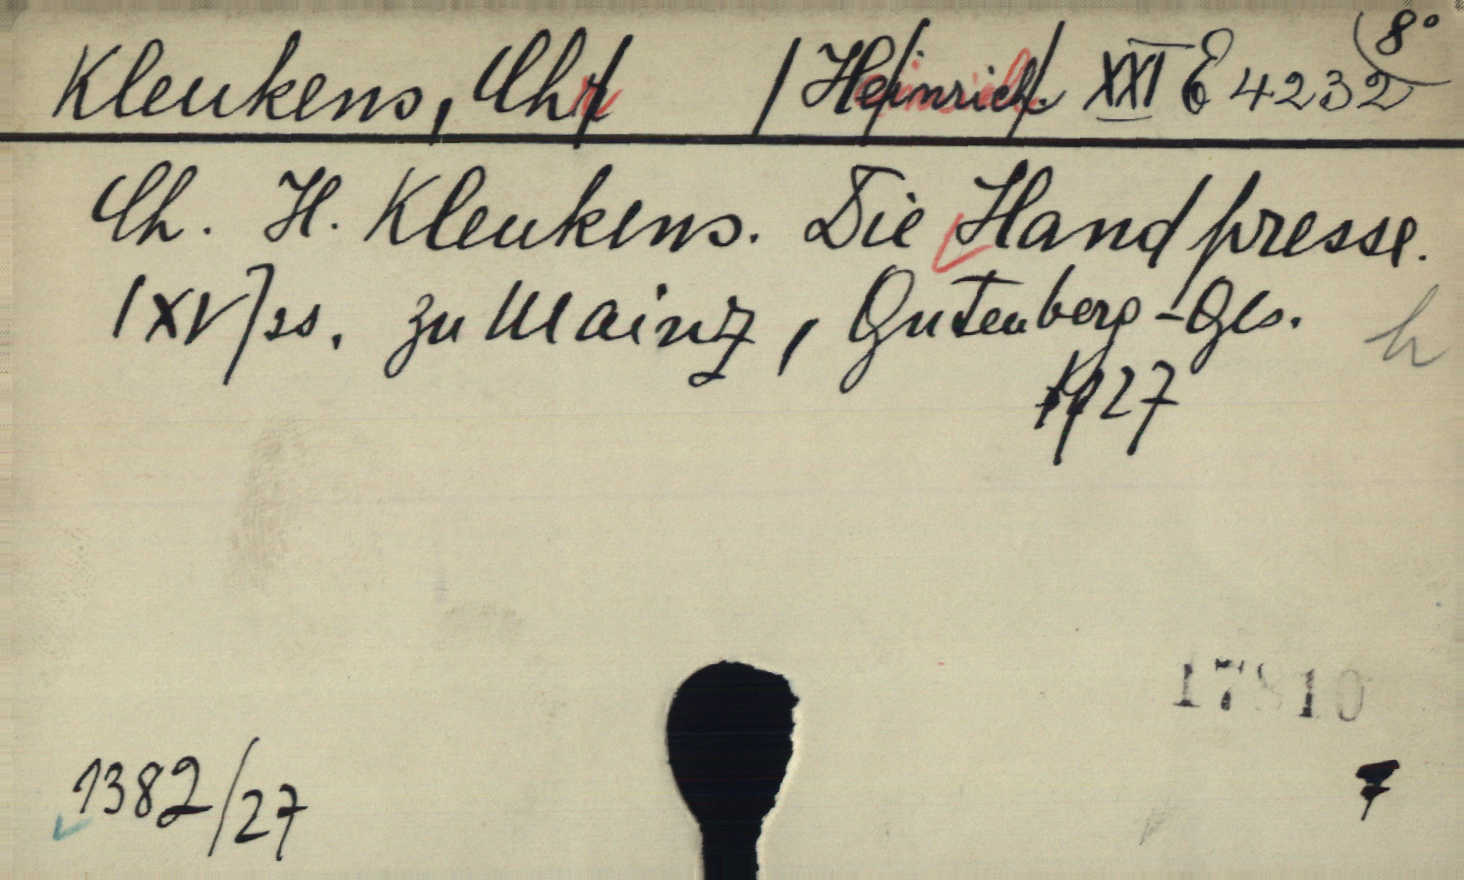 Kleukens, Ch / Heinrich XXI E 4232 8°
Ch. H. Kleukens. Die Handpresse.
[XV] ss. zu Mainz, Gutenberg-Ges.
1927
h
17810
1382/27
7